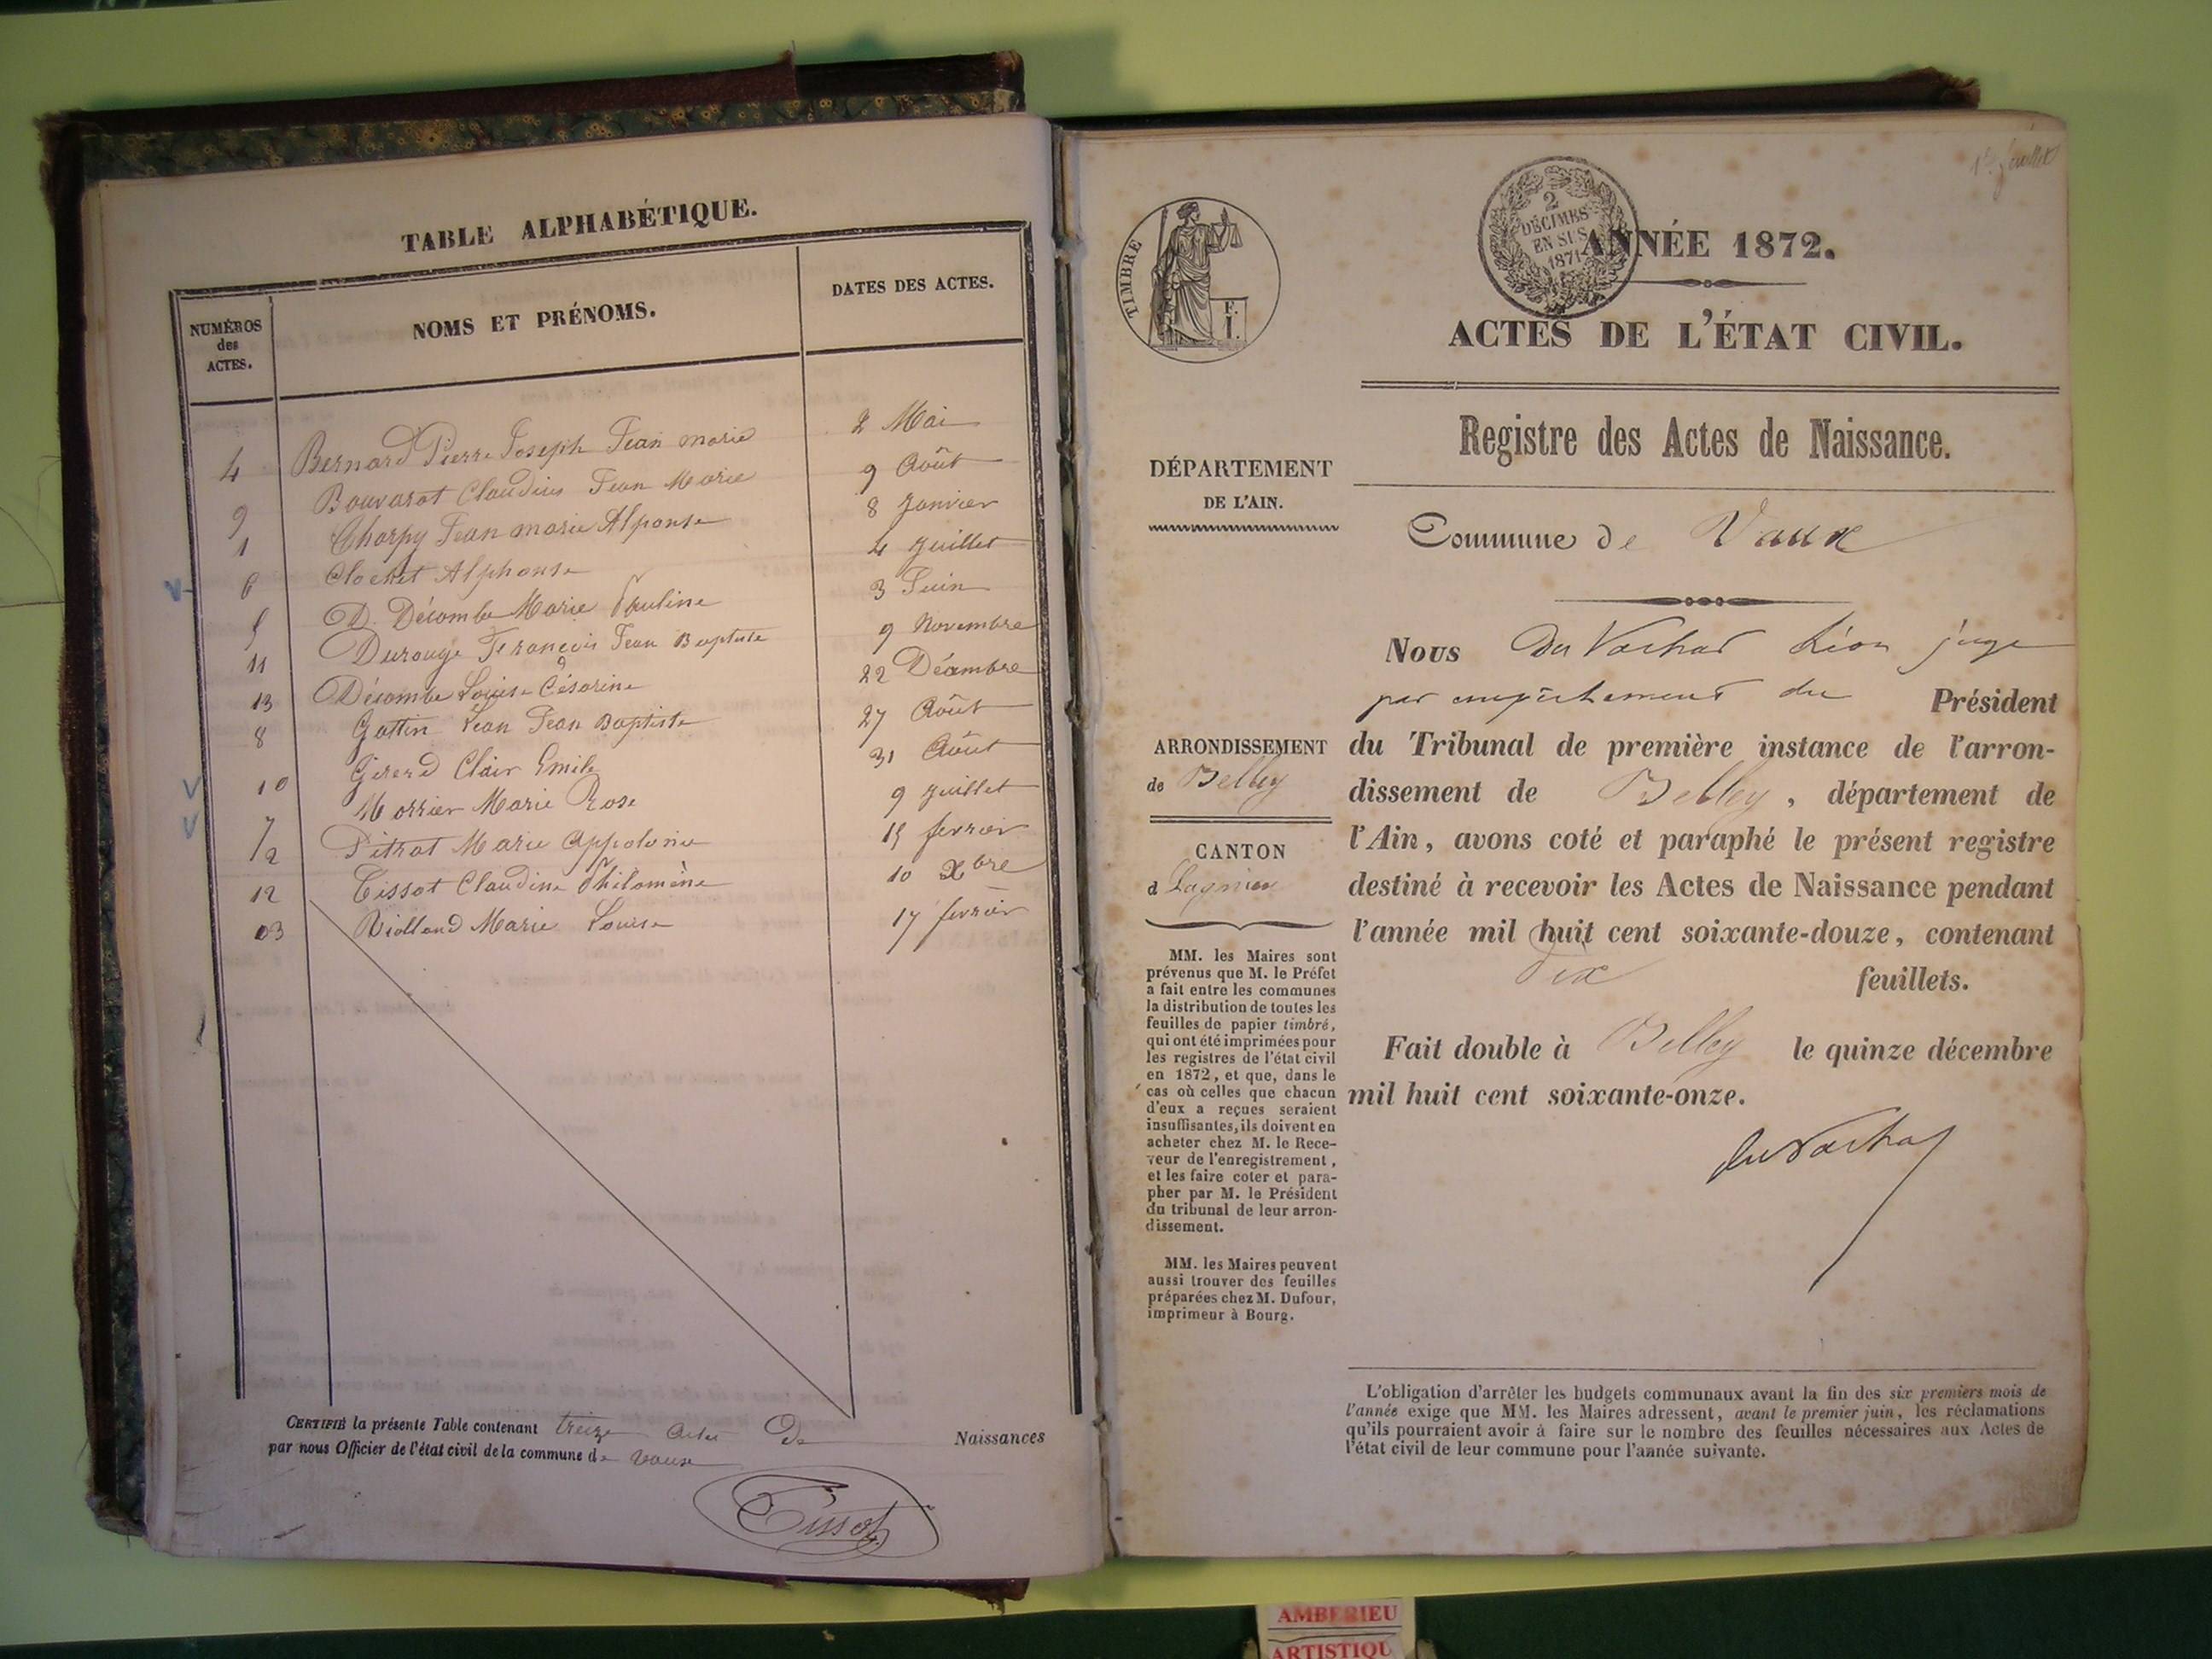 TABLE ALPHABÉTIQUE.
NUMÉROS
des
ACTES.
NOMS ET PRÉNOMS.
DATES DES ACTES.
4 Bernard Pierre Joseph Jean marie 2 Mai
9 Bouvarot Claudius Jean Marie 9 Août
1 Charpy Jean marie Alponse 8 Janvier
6 Clochet Alphonse 4 Juillet
5 D. Décombe Marie Pauline 3 Juin
11 Durouge François Jean Baptiste 9 Novembre
13 Décombe Louise Césarine 22 Décembre
8 Gottin Jean Baptiste 27 Août
10 Girerd Clair Emile 31 Août
7 Morrier Marie Rose 9 Juillet
2 Pitrat Marie Appolonie 15 fevrier
12 Tissot Claudine Philomène 10 Xbre
03 Riolland Marie Louise 17 fevrier
CERTIFIÉ la présente Table contenant treize actes De Naissances
par nous Officier de l'état civil de la commune de Vaux
Tissot
1er feuillet
TIMBRE
F.
I.
2
DÉCIMES
EN SUS
1871
ANNÉE 1872.
ACTES DE L'ÉTAT CIVIL.
Registre des Actes de Naissance.
DÉPARTEMENT
DE L'AIN.
Commune de Vaux
Nous Du Vachat Léon juge
par empêchement du Président
ARRONDISSEMENT
de Belley
CANTON
d Lagnieu
du Tribunal de première instance de l'arron-
dissement de Belley, département de
l'Ain, avons coté et paraphé le présent registre
destiné à recevoir les Actes de Naissance pendant
l'année mil huit cent soixante-douze, contenant
Dix feuillets.
Fait double à Belley le quinze décembre
mil huit cent soixante-onze.
du Vachat
MM. les Maires sont
prévenus que M. le Préfet
a fait entre les communes
la distribution de toutes les
feuilles de papier timbré,
qui ont été imprimées pour
les registres de l'état civil
en 1872, et que, dans le
cas où celles que chacun
d'eux a reçues seraient
insuffisantes, ils doivent en
acheter chez M. le Rece-
veur de l'enregistrement,
et les faire coter et para-
pher par M. le Président
du tribunal de leur arron-
dissement.
MM. les Maires peuvent
aussi trouver des feuilles
préparées chez M. Dufour,
imprimeur à Bourg.
L'obligation d'arrêter les budgets communaux avant la fin des six premiers mois de
l'année exige que MM. les Maires adressent, avant le premier juin, les réclamations
qu'ils pourraient avoir à faire sur le nombre des feuilles nécessaires aux Actes de
l'état civil de leur commune pour l'année suivante.
AMBERIEU
ARTISTIQU